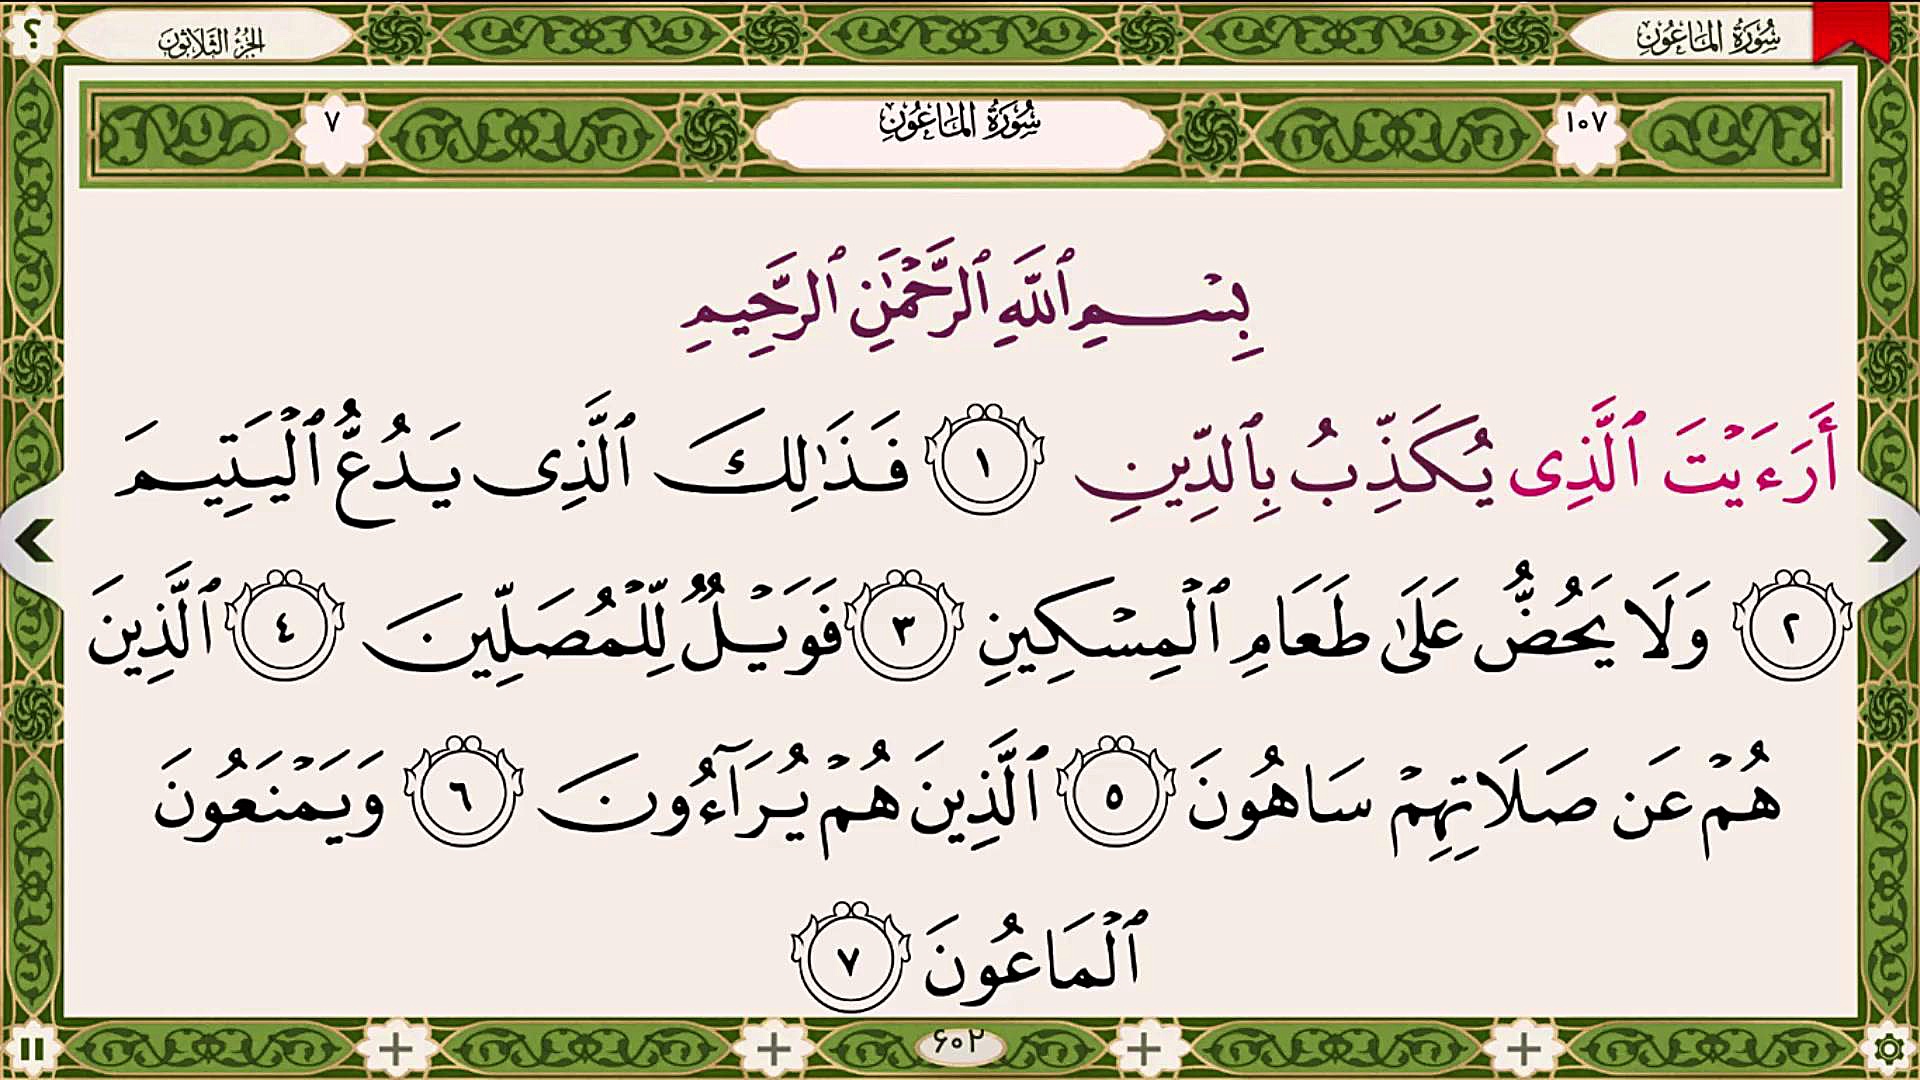 ؟ الجزء الثلاثون سورة الماعون
٧ سورة الماعون ١٠٧
بِسْمِ ٱللَّهِ ٱلرَّحْمَٰنِ ٱلرَّحِيمِ
أَرَءَيْتَ ٱلَّذِى يُكَذِّبُ بِٱلدِّينِ ١ فَذَٰلِكَ ٱلَّذِى يَدُعُّ ٱلْيَتِيمَ
٢ وَلَا يَحُضُّ عَلَىٰ طَعَامِ ٱلْمِسْكِينِ ٣ فَوَيْلٌ لِّلْمُصَلِّينَ ٤ ٱلَّذِينَ
هُمْ عَن صَلَاتِهِمْ سَاهُونَ ٥ ٱلَّذِينَ هُمْ يُرَآءُونَ ٦ وَيَمْنَعُونَ
ٱلْمَاعُونَ ٧
۶۰۲